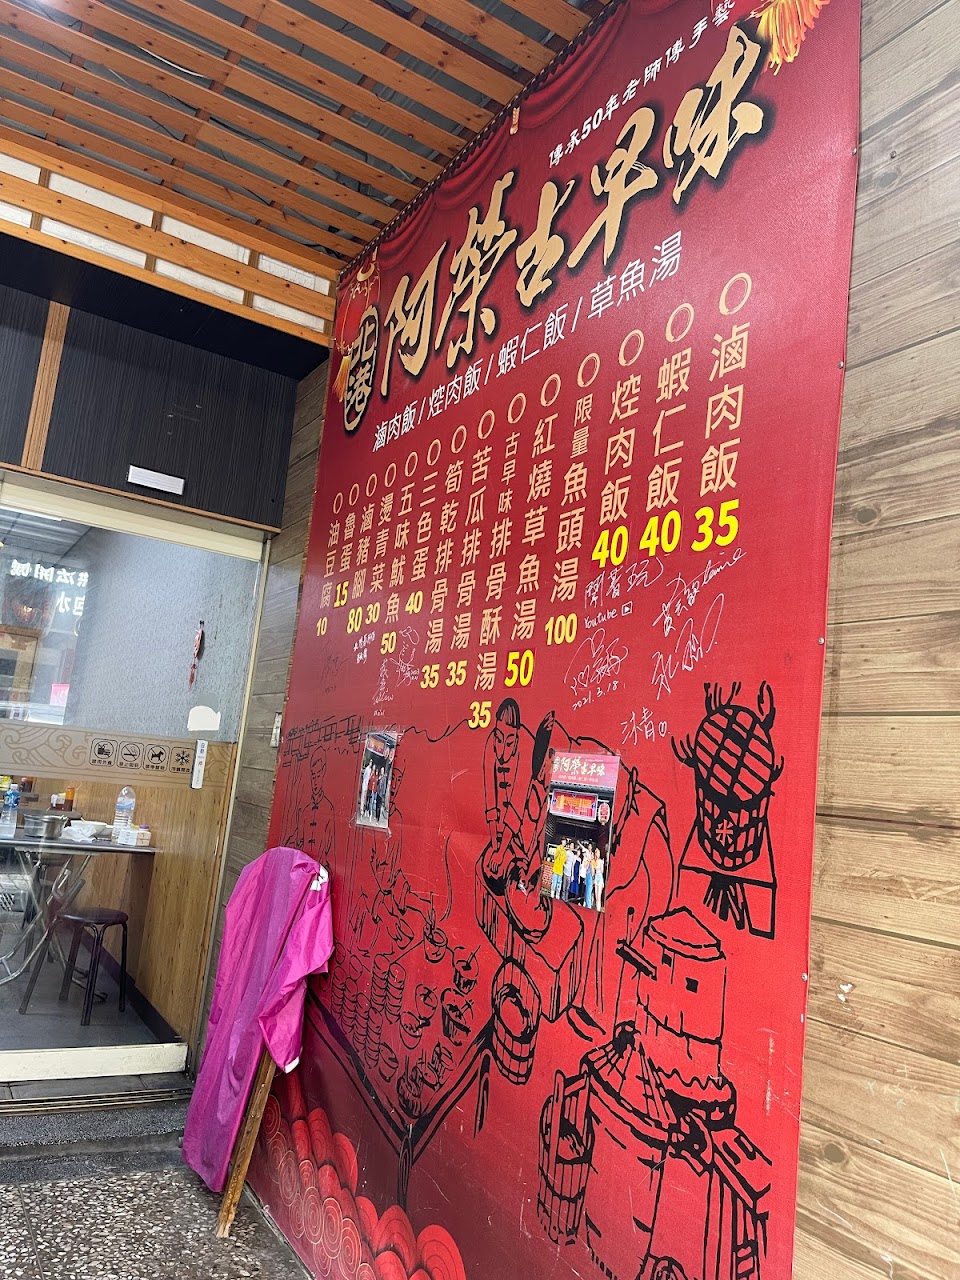 傳承50年老師傅手藝
北港
阿榮古早味
滷肉飯/焢肉飯/蝦仁飯/草魚湯
滷肉飯35
蝦仁飯40
焢肉飯40
限量魚頭湯100
紅燒草魚湯50
古早味排骨酥湯35
苦瓜排骨湯35
筍乾排骨湯35
三色蛋40
五味魷魚50
燙青菜30
滷豬腳80
魯蛋15
油豆腐10
Youtube
2021.3.18.
阿榮古早味
米